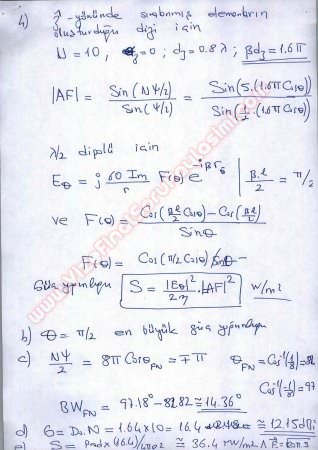 4) z-yönünde sıralanmış elemanların
oluşturduğu dizi için
N = 10, αz=0; dz = 0.8λ; βdz = 1.6π
|AF| = Sin(Nψ/2) / Sin(ψ/2) = Sin(5.(1.6π Cosθ)) / Sin(1/2.(1.6π Cosθ))
λ/2 dipolü için
Eθ = j 60 Im / r F(θ) e^-jβr0 | βℓ/2 = π/2
ve F(θ) = Cos(βℓ/2 Cosθ) - Cos(βℓ/2) / Sinθ
F(θ) = Cos(π/2 Cosθ) / Sinθ
Güç yoğunluğu S = |Eθ|²/2η . |AF|² W/m²
b) θ = π/2 en büyük güç yoğunluğu
c) Nψ/2 = 8π CosθFN = ∓π θFN = Cos⁻¹(1/8) = 82
Cos⁻¹(-1/8) = 97
BWFN = 97.18° - 82.82 ≅ 14.36°
d) G = D0.N = 1.64x10 = 16.4 ≅ 12.15 dBi
e) S = Prad x (16.4)/4πr² ≅ 36.4 mW/m²
www.VizeFinalSoruPaylasimi.com